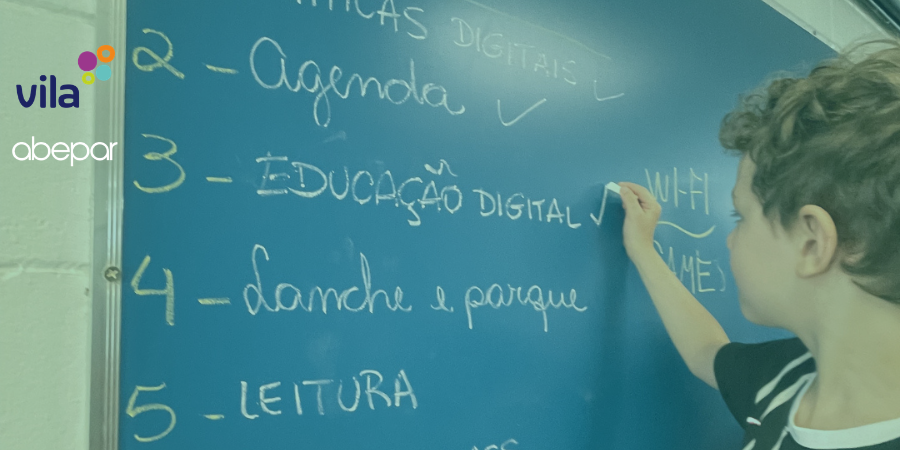 DIGITAIS ✓
2 - Agenda ✓
3 - EDUCAÇÃO DIGITAL ✓
WI-FI
GAMES
4 - Lanche e parque
5 - LEITURA
vila
abepar